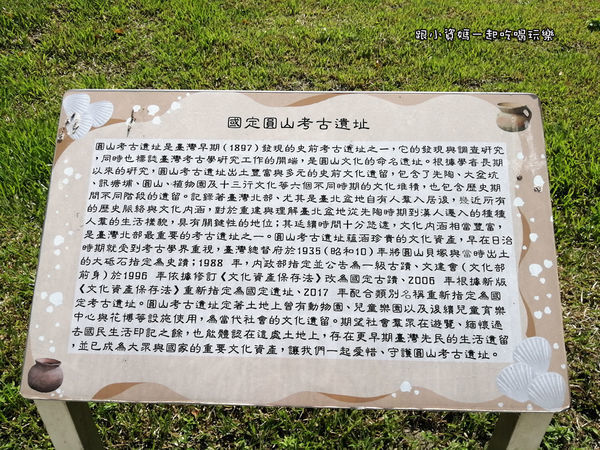 跟小資媽一起吃喝玩樂
國定圓山考古遺址
圓山考古遺址是臺灣早期(1897)發現的史前考古遺址之一，它的發現與調查研究
，同時也標誌臺灣考古學研究工作的開端，是圓山文化的命名遺址。根據學者長期
以來的研究，圓山考古遺址出土豐富與多元的史前文化遺留，包含了先陶、大坌坑
、訊塘埔、圓山、植物園及十三行文化等六個不同時期的文化堆積，也包含歷史期
間不同階段的遺留。記錄著臺灣北部、尤其是臺北盆地自有人羣入居後，幾近所有
的歷史脈絡與文化內涵，對於重建與理解臺北盆地從先陶時期到漢人遷入的種種
人羣的生活樣貌，具有關鍵性的地位；其延續時間十分悠遠，文化內涵相當豐富，
是臺灣北部最重要的考古遺址之一。圓山考古遺址蘊涵珍貴的文化資產，早在日治
時期就受到考古學界重視，臺灣總督府於1935(昭和10)年將圓山貝塚與當時出土
的大砥石指定為史蹟；1988 年，內政部指定並公告為一級古蹟、文建會(文化部
前身)於1996 年依據修訂《文化資產保存法》改為國定古蹟、2006 年根據新版
《文化資產保存法》重新指定為國定遺址、2017 年配合類別名稱重新指定為國
定考古遺址。圓山考古遺址定著土地上曾有動物園、兒童樂園以及後續兒童育樂
中心與花博等設施使用，為當代社會的文化遺留。期望社會羣眾在遊覽、緬懷過
去國民生活印記之餘，也能體認在這處土地上，存在更早期臺灣先民的生活遺留
，並已成為大眾與國家的重要文化資產，讓我們一起愛惜、守護圓山考古遺址。